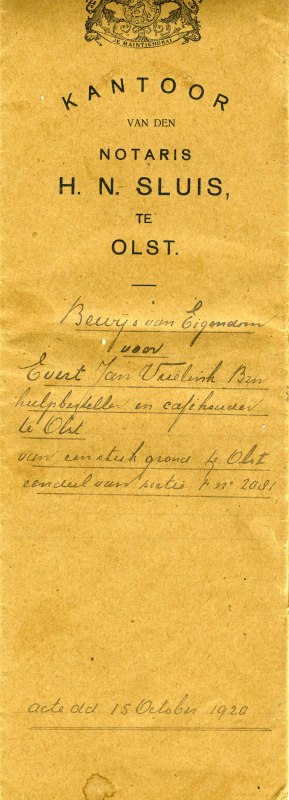 JE MAINTIENDRAI
KANTOOR
VAN DEN
NOTARIS
H. N. SLUIS,
TE
OLST.
Bewijs van Eigendom
voor
Evert Jan Vrielink Bzn
hulpbesteller en caféhouder
te Olst
van een stuk grond te Olst
een deel van sectie F nº 2081
acte dd 15 October 1920